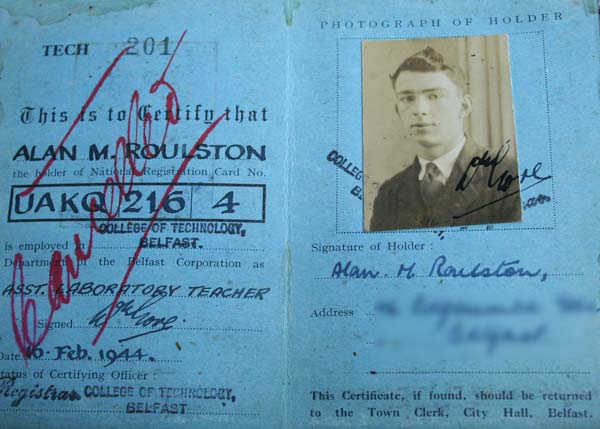 TECH 201
This is to Certify that
ALAN M. ROULSTON
the holder of National Registration Card No.
UAKQ 216 4
COLLEGE OF TECHNOLOGY,
BELFAST.
is employed in
Department of the Belfast Corporation as
ASST. LABORATORY TEACHER
Signed
Date 16 Feb. 1944.
Status of Certifying Officer :
Registrar COLLEGE OF TECHNOLOGY,
BELFAST
Cancelled
PHOTOGRAPH OF HOLDER
COLLEGE
Signature of Holder :
Alan M Roulston,
Address
This Certificate, if found, should be returned
to the Town Clerk, City Hall, Belfast.